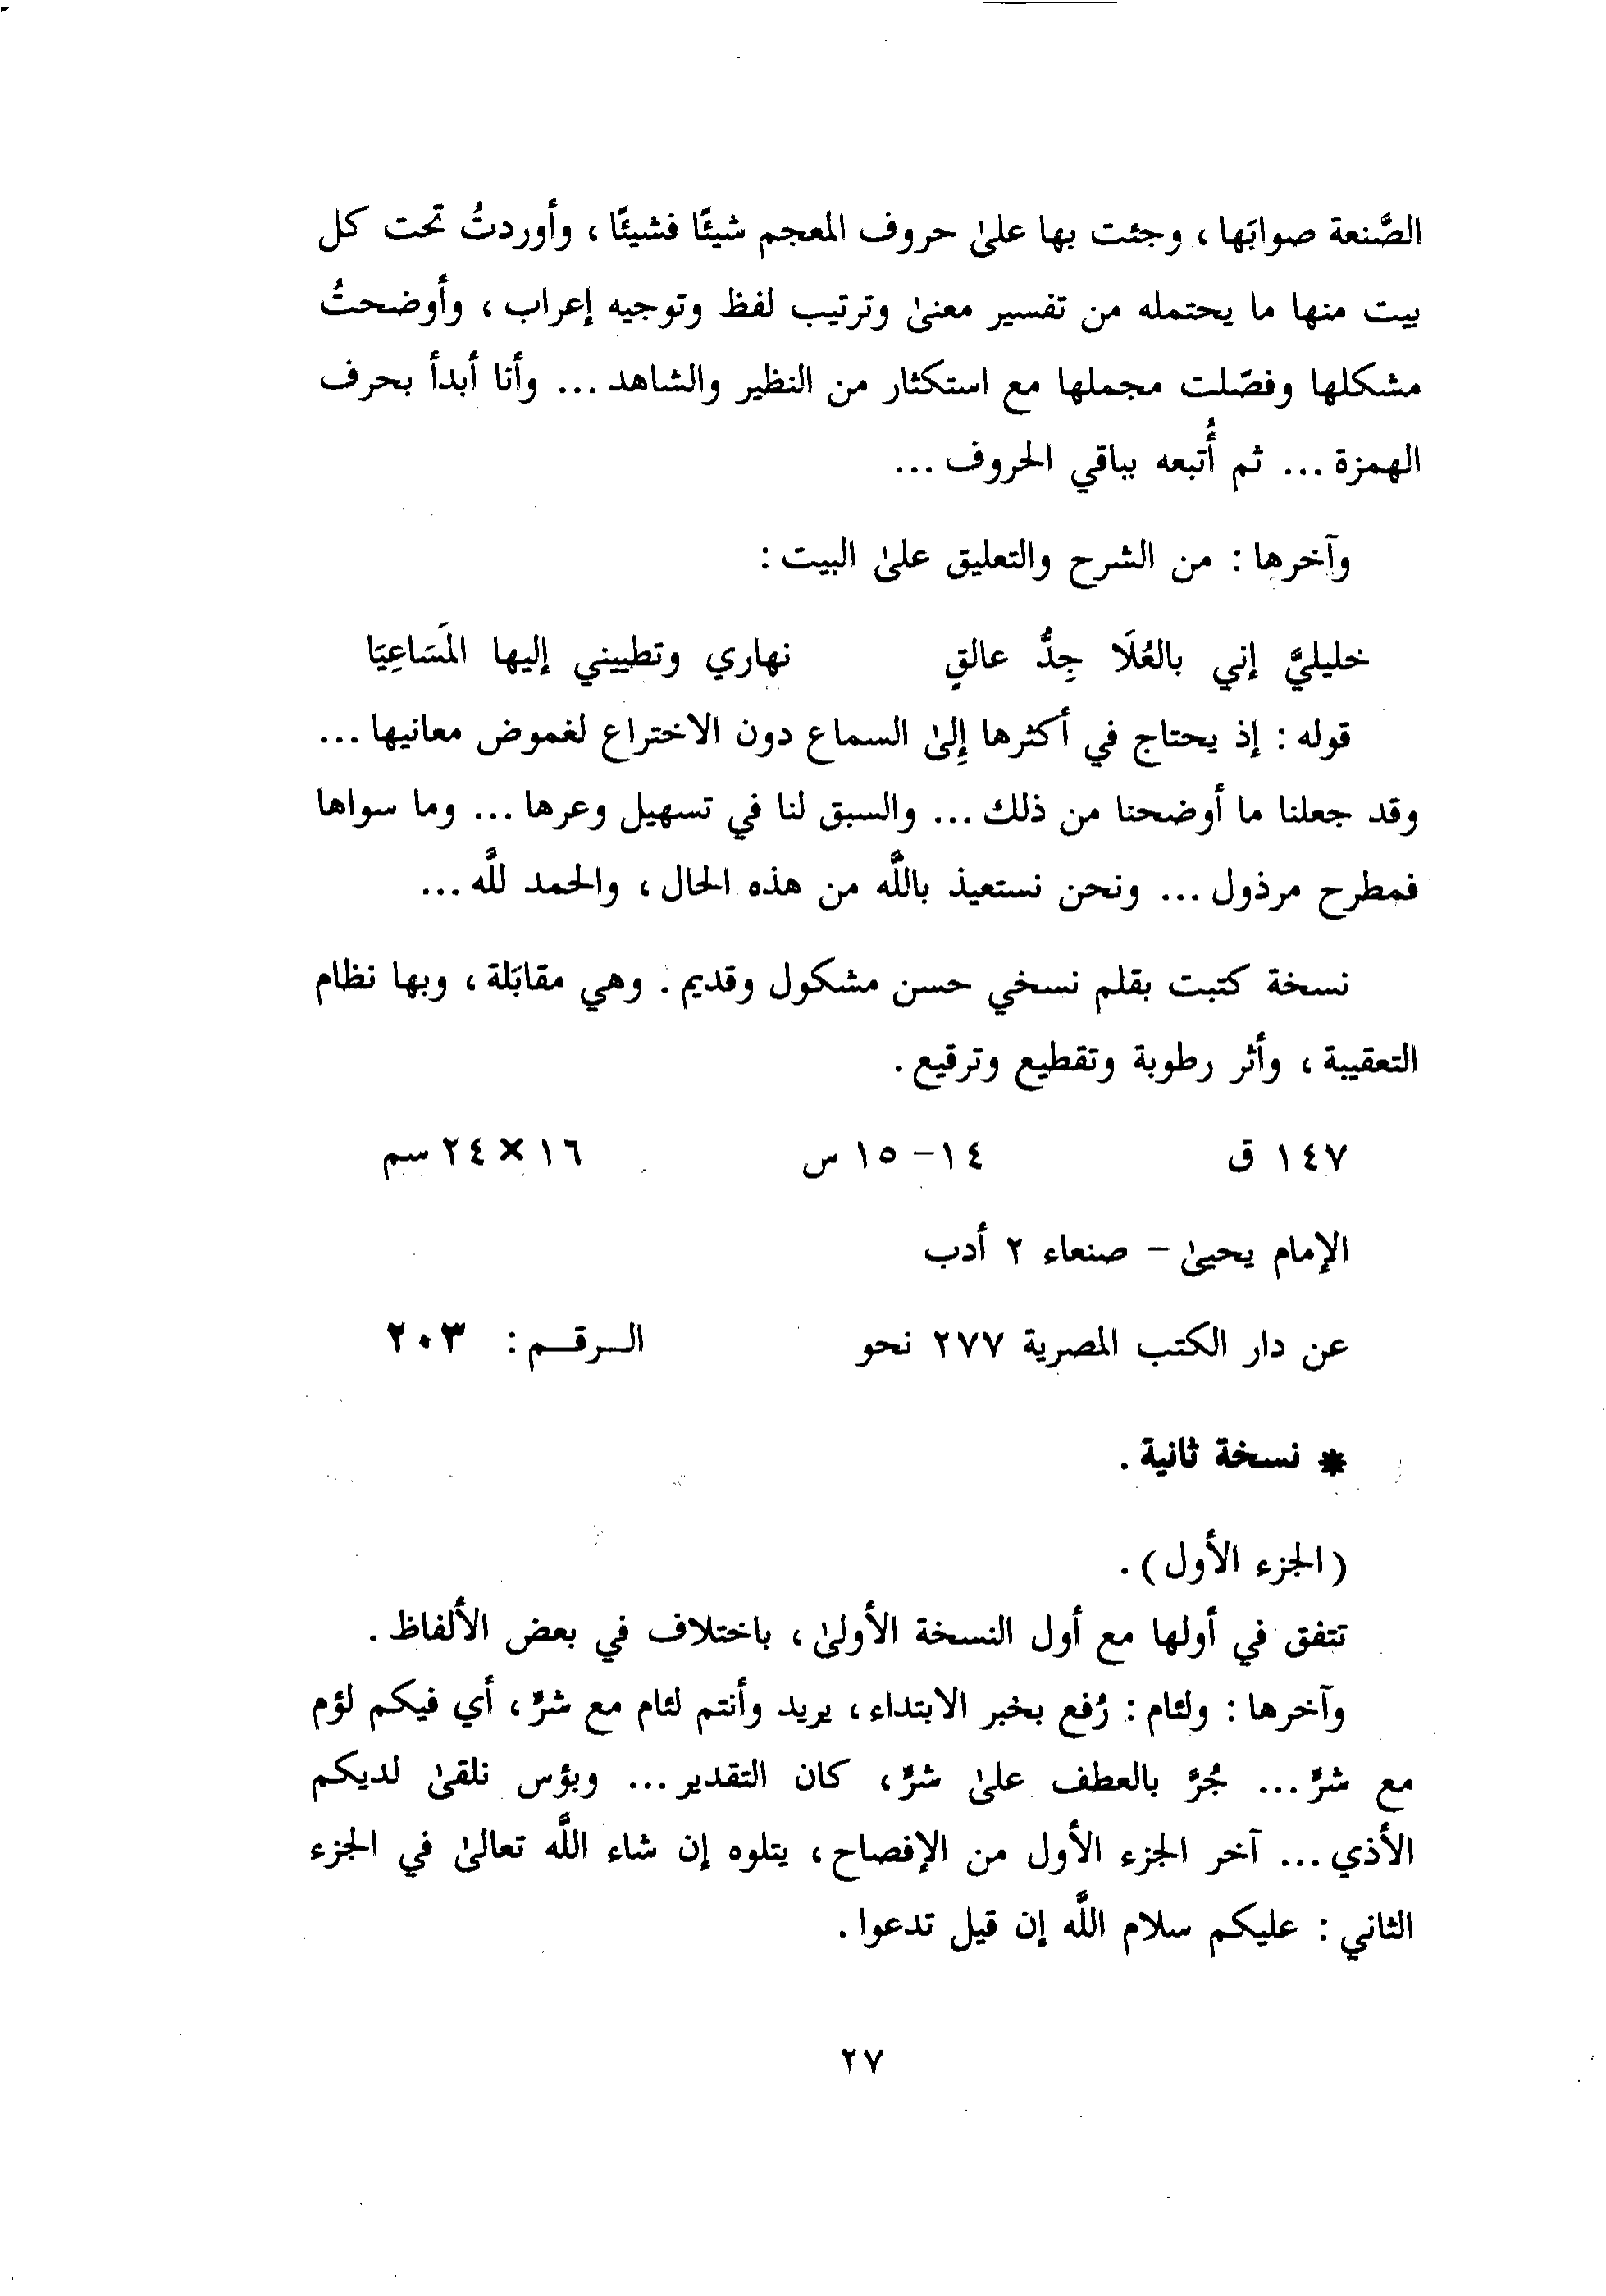 الصَّنعة صوابَها ، وجئت بها علىٰ حروف المعجم شيئًا فشيئًا ، وأوردتُ تحت كل
بيت منها ما يحتمله من تفسير معنىٰ وترتيب لفظ وتوجيه إعراب ، وأوضحتُ
مشكلها وفصّلت مجملها مع استكثار من النظير والشاهد ... وأنا أبدأ بحرف
الهمزة ... ثم أُتبعه بباقي الحروف ...
وآخرها : من الشرح والتعليق علىٰ البيت :
خليليَّ إني بالعُلَا جِدُّ عالقٍ نهاري وتطيبني إليها المَسَاعِيَا
قوله : إذ يحتاج في أكثرها إِلىٰ السماع دون الاختراع لغموض معانيها ...
وقد جعلنا ما أوضحنا من ذلك ... والسبق لنا في تسهيل وعرها ... وما سواها
فمطرح مرذول ... ونحن نستعيذ باللَّه من هذه الحال ، والحمد للَّه ...
نسخة كتبت بقلم نسخي حسن مشكول وقديم . وهي مقابَلة ، وبها نظام
التعقيبة ، وأثر رطوبة وتقطيع وترقيع .
١٤٧ ق ١٤ – ١٥ س ١٦ × ٢٤ سم
الإمام يحيىٰ – صنعاء ٢ أدب
عن دار الكتب المصرية ٢٧٧ نحو الـرقـم : ٢٠٣
* نسخة ثانية .
( الجزء الأول ) .
تتفق في أولها مع أول النسخة الأولىٰ ، باختلاف في بعض الألفاظ .
وآخرها : ولئام : رُفع بخبر الابتداء ، يريد وأنتم لئام مع شرٍّ ، أي فيكم لؤم
مع شرٍّ ... جُرَّ بالعطف علىٰ شرٍّ ، كان التقدير ... وبؤس نلقىٰ لديكم
الأذي ... آخر الجزء الأول من الإفصاح ، يتلوه إن شاء اللَّه تعالىٰ في الجزء
الثاني : عليكم سلام اللَّه إن قيل تدعوا .
٢٧